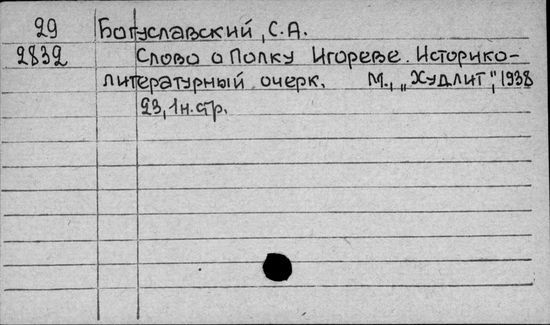 29 Богуславский, С.А.
2832 Слово о Полку Игореве. Историко-
литературный очерк. М., „Худлит", 1938
23, 1н.стр.